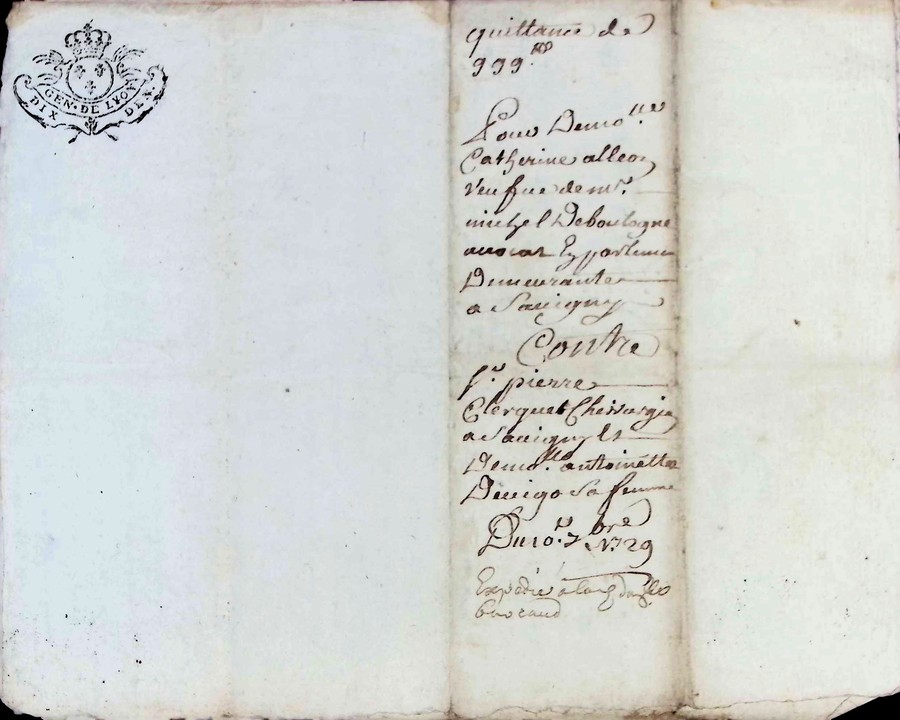 GEN. DE LYON
DIX DEN.
quittance de
999 ₶
Pour Demo.lle
Catherine alleon
veufue de mr.
michel Deboulogne
auocat En parlemen
Demeurante
a Sauigny
Contre
Sr. pierre
Clerquet Chirurgie
a Sauigny Et
Demo.lle antoinette
Deuigo Sa femme
Du 10.e 7bre
1729
Expédié